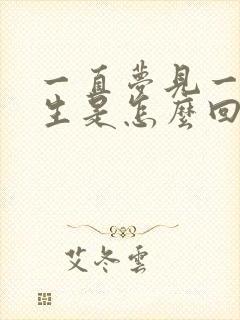 一直夢見一
生是怎麼回
艾冬雲